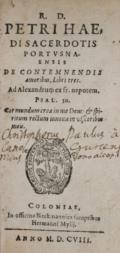 R. D.
PETRI HAE,
DI SACERDOTIS
PORTVSNA-
ENSIS
DE CONTEMNENDIS
amoribus, Libri tres.
Ad Alexandrum ex fr. nepotem.
PSAL. 50.
Cor mundum crea in me Deus: & spi-
ritum rectum innova in visceribus
meis.
COLONIAE,
In officina
Hermanni Mylij.
ANNO M. D. CVIII.